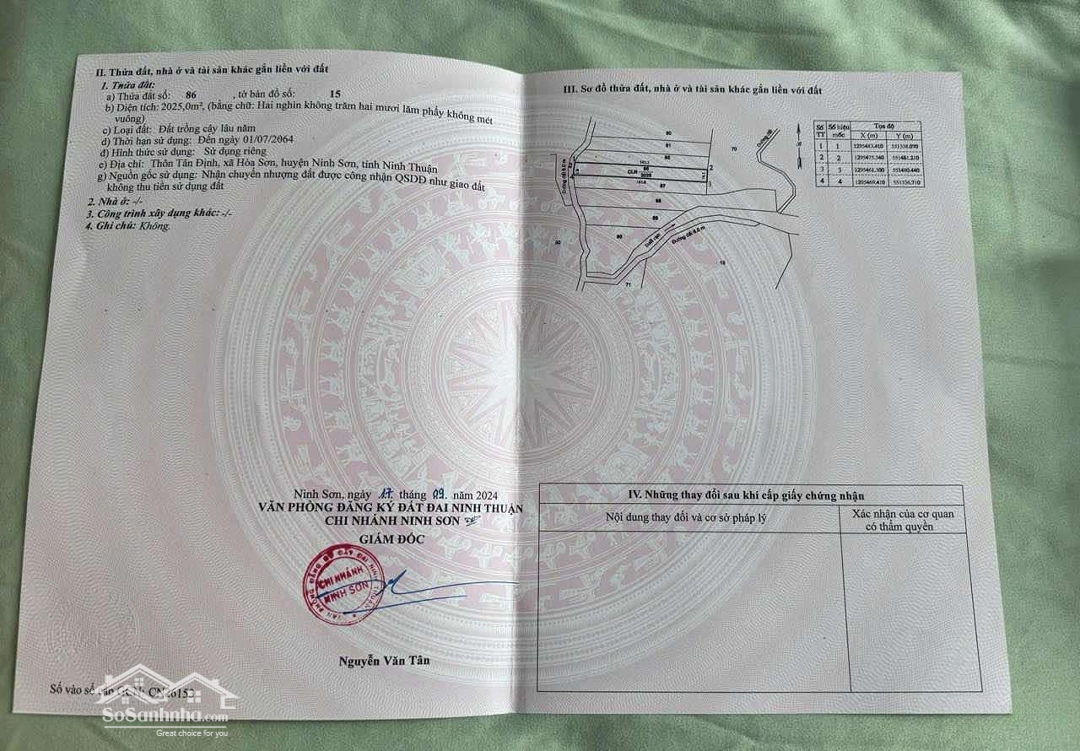 II. Thửa đất, nhà ở và tài sản khác gắn liền với đất
1. Thửa đất:
a) Thửa đất số: 86 , tờ bản đồ số: 15
b) Diện tích: 2025,0m², (bằng chữ: Hai nghìn không trăm hai mươi lăm phẩy không mét
vuông)
c) Loại đất: Đất trồng cây lâu năm
d) Thời hạn sử dụng: Đến ngày 01/07/2064
đ) Hình thức sử dụng: Sử dụng riêng
e) Địa chỉ: Thôn Tân Định, xã Hòa Sơn, huyện Ninh Sơn, tỉnh Ninh Thuận
g) Nguồn gốc sử dụng: Nhận chuyển nhượng đất được công nhận QSDĐ như giao đất
không thu tiền sử dụng đất
2. Nhà ở: -/-
3. Công trình xây dựng khác: -/-
4. Ghi chú: Không.
Ninh Sơn, ngày 17 tháng 09 năm 2024
VĂN PHÒNG ĐĂNG KÝ ĐẤT ĐAI NINH THUẬN
CHI NHÁNH NINH SƠN
GIÁM ĐỐC
CHI NHÁNH
NINH SƠN
Nguyễn Văn Tân
Số vào sổ cấp GCN:
SoSanhnha.com
Great choice for you
III. Sơ đồ thửa đất, nhà ở và tài sản khác gắn liền với đất
70
87
88
89
90
71
Suối cạn
Đường đất 8.0 m
Số TT Số hiệu mốc Tọa độ
X (m) Y (m)
1 1
2 2
3 3
4 4
IV. Những thay đổi sau khi cấp giấy chứng nhận
Nội dung thay đổi và cơ sở pháp lý
Xác nhận của cơ quan
có thẩm quyền